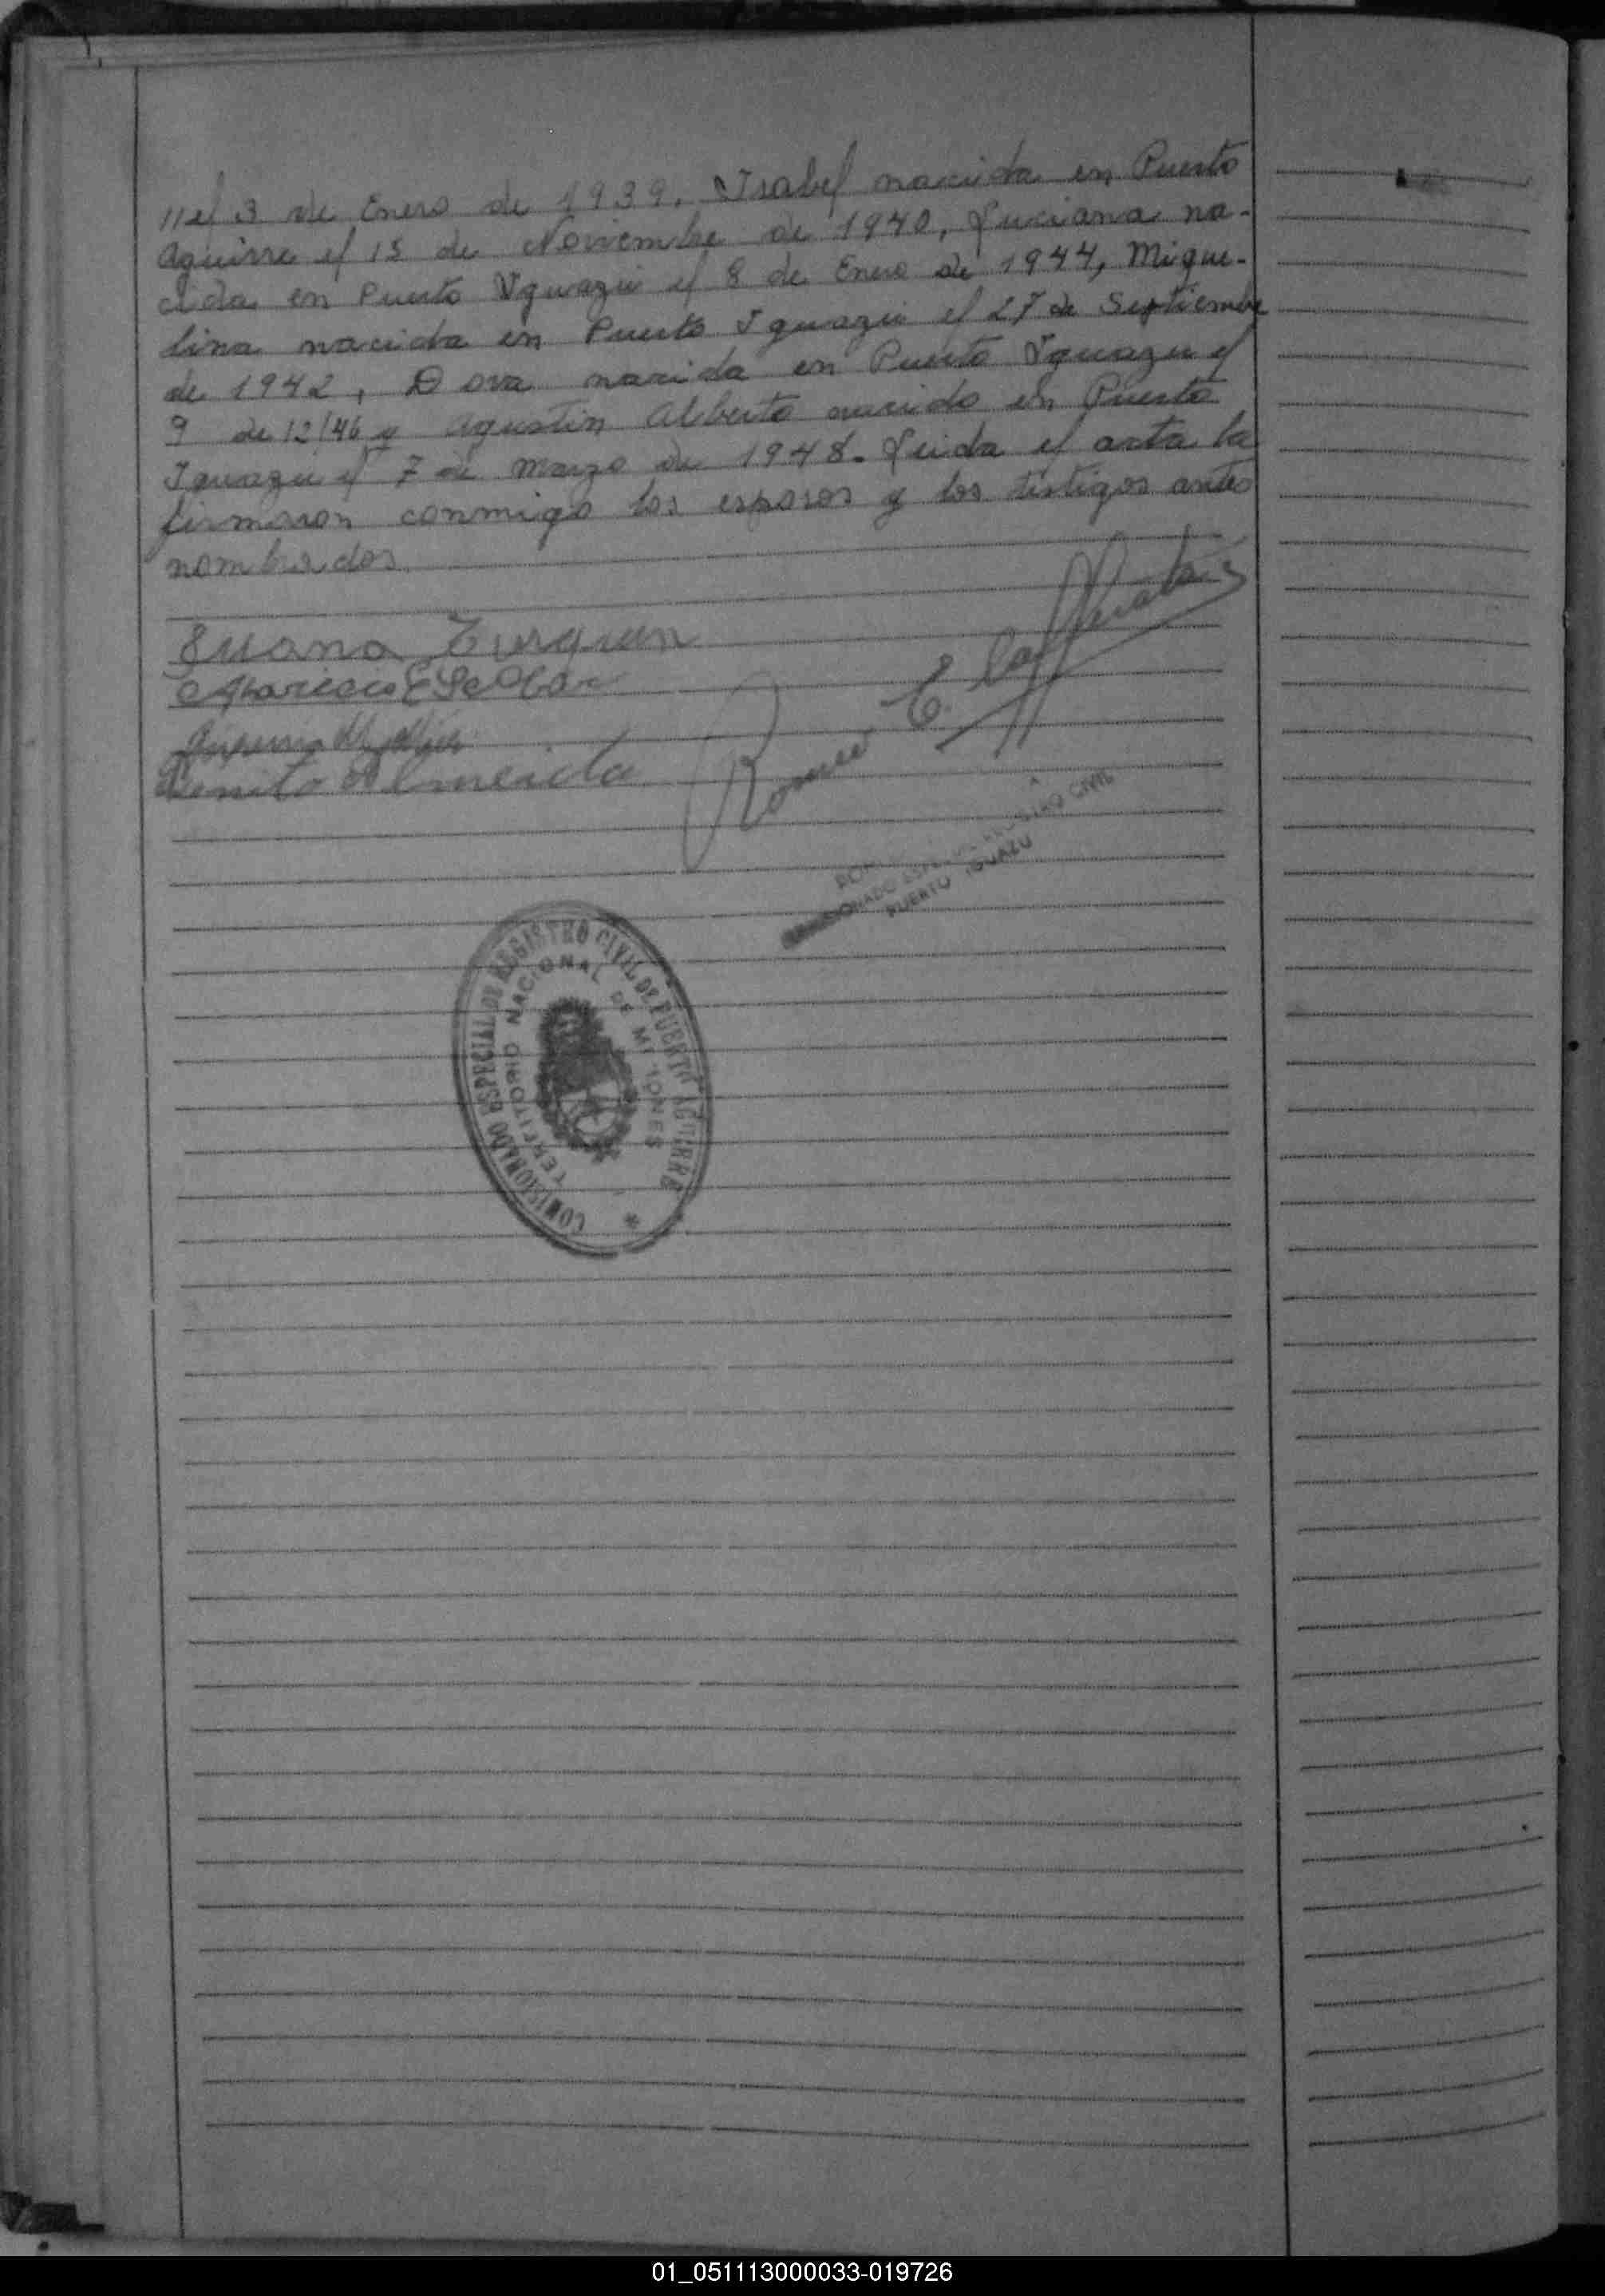 // el 3 de Enero de 1939, Isabel nacida en Puerto
Aguirre el 15 de Noviembre de 1940, Luciana na-
cida en Puerto Yguazú el 8 de Enero de 1944, Migue-
lina nacida en Puerto Iguazú el 27 de Septiembre
de 1942, Dora nacida en Puerto Yguazu el
9 de 12/46 y Agustin Alberto nacido en Puerto
Iguazu el 7 de Marzo de 1948. Leida el acta la
firmaron conmigo los esposos y los testigos antes
nombrados.
Juana
Aparicio Escobar
Benito Almeida
Romeo E.
REGISTRO CIVIL
COMISIONADO ESPECIAL
PUERTO IGUAZU
COMISIONADO ESPECIAL DE REGISTRO CIVIL DE PUERTO AGUIRRE
TERRITORIO NACIONAL DE MISIONES
01_051113000033-019726